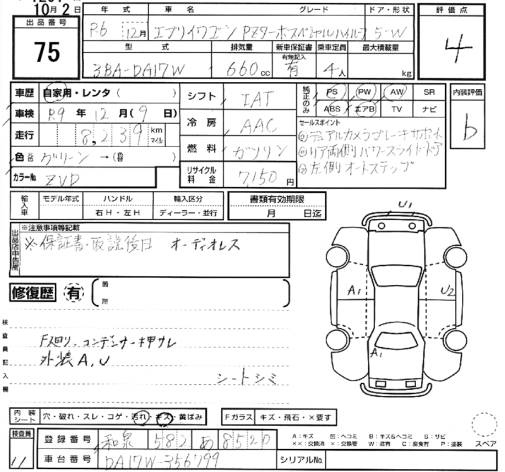 10月2日
出品番号
75
年式 車名 グレード ドア・形状
R6 12月 エブリイワゴン PZターボスペシャルハイルーフ 5-W
型式 排気量 新車保証書 有無記入 乗車定員 最大積載量
3BA-DA17W 660cc 有 4人 kg
評価点
4
車歴 自家用・レンタ( )
車検 R9年12月(9)日
走行 8,239 km マイル
色 グリーン→( )
カラーNo. ZVD
シフト IAT
冷房 AAC
燃料 ガソリン
リサイクル料金 7,150円
純正のみ
PS PW AW SR
ABS エアB TV ナビ
セールスポイント
①デュアルカメラブレーキサポート
②リア両側パワースライドドア
③左側オートステップ
内装評価
b
輸入車 モデル年式 ハンドル 輸入区分
年 右H・左H ディーラー・並行
書類有効期限
月 日迄
※注意事項等記載
※保証書・取説後日 オーディオレス
修復歴 有
箇所
検査員記入欄
コンデンサー
外装A,U
シートシミ
U1
A1
U2
A1
内装シート 穴・破れ・スレ・コゲ・汚れ・キズ・黄ばみ
Fガラス キズ・飛石・×要す
検査員
11
登録番号 和泉 582 あ 8520
車台番号 DA17W-356799
シリアルNo.
A:キズ U:ヘコミ B:キズ&ヘコミ S:サビ
××:交換済 ×:交換要 W:波有 C:腐食有 P:塗装
スペア